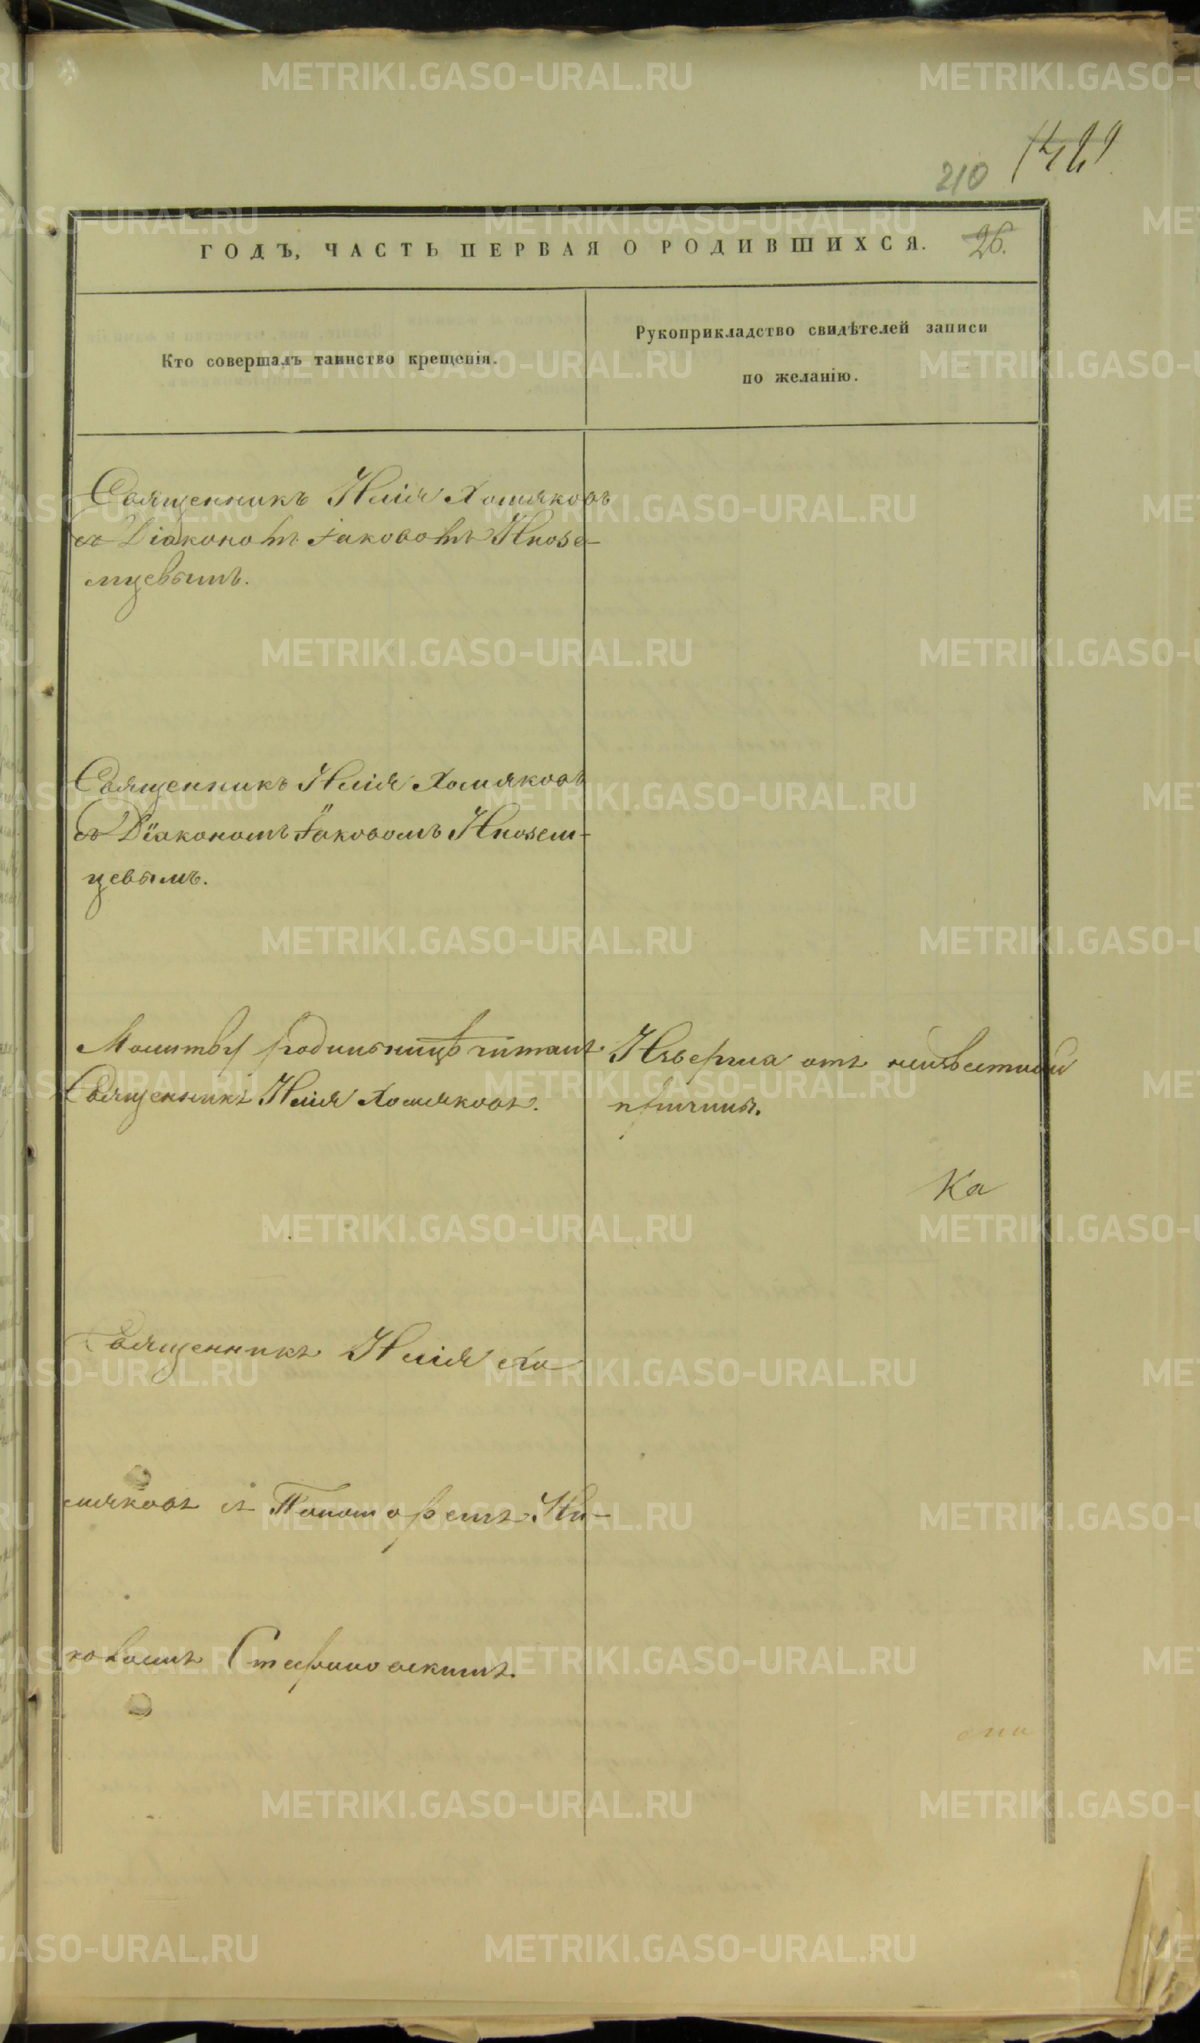 210
ГОДЪ, ЧАСТЬ ПЕРВАЯ О РОДИВШИХСЯ. 26.
Кто совершалъ таинство крещенія.
Рукоприкладство свидѣтелей записи
по желанію.
Священникъ Илія Хомяковъ
съ Діакономъ Іаковомъ Инозе-
мцевымъ.
Священникъ Илія Хомяковъ
съ Діакономъ Іаковомъ Инозем-
цевымъ.
Молитву родильницѣ читалъ
Священникъ Илія Хомяковъ.
Извергла отъ неизвѣстной
причины.
Ка
Священникъ Илія Хо
мяковъ съ Пономаремъ Ни-
METRIKI.GASO-URAL.RU